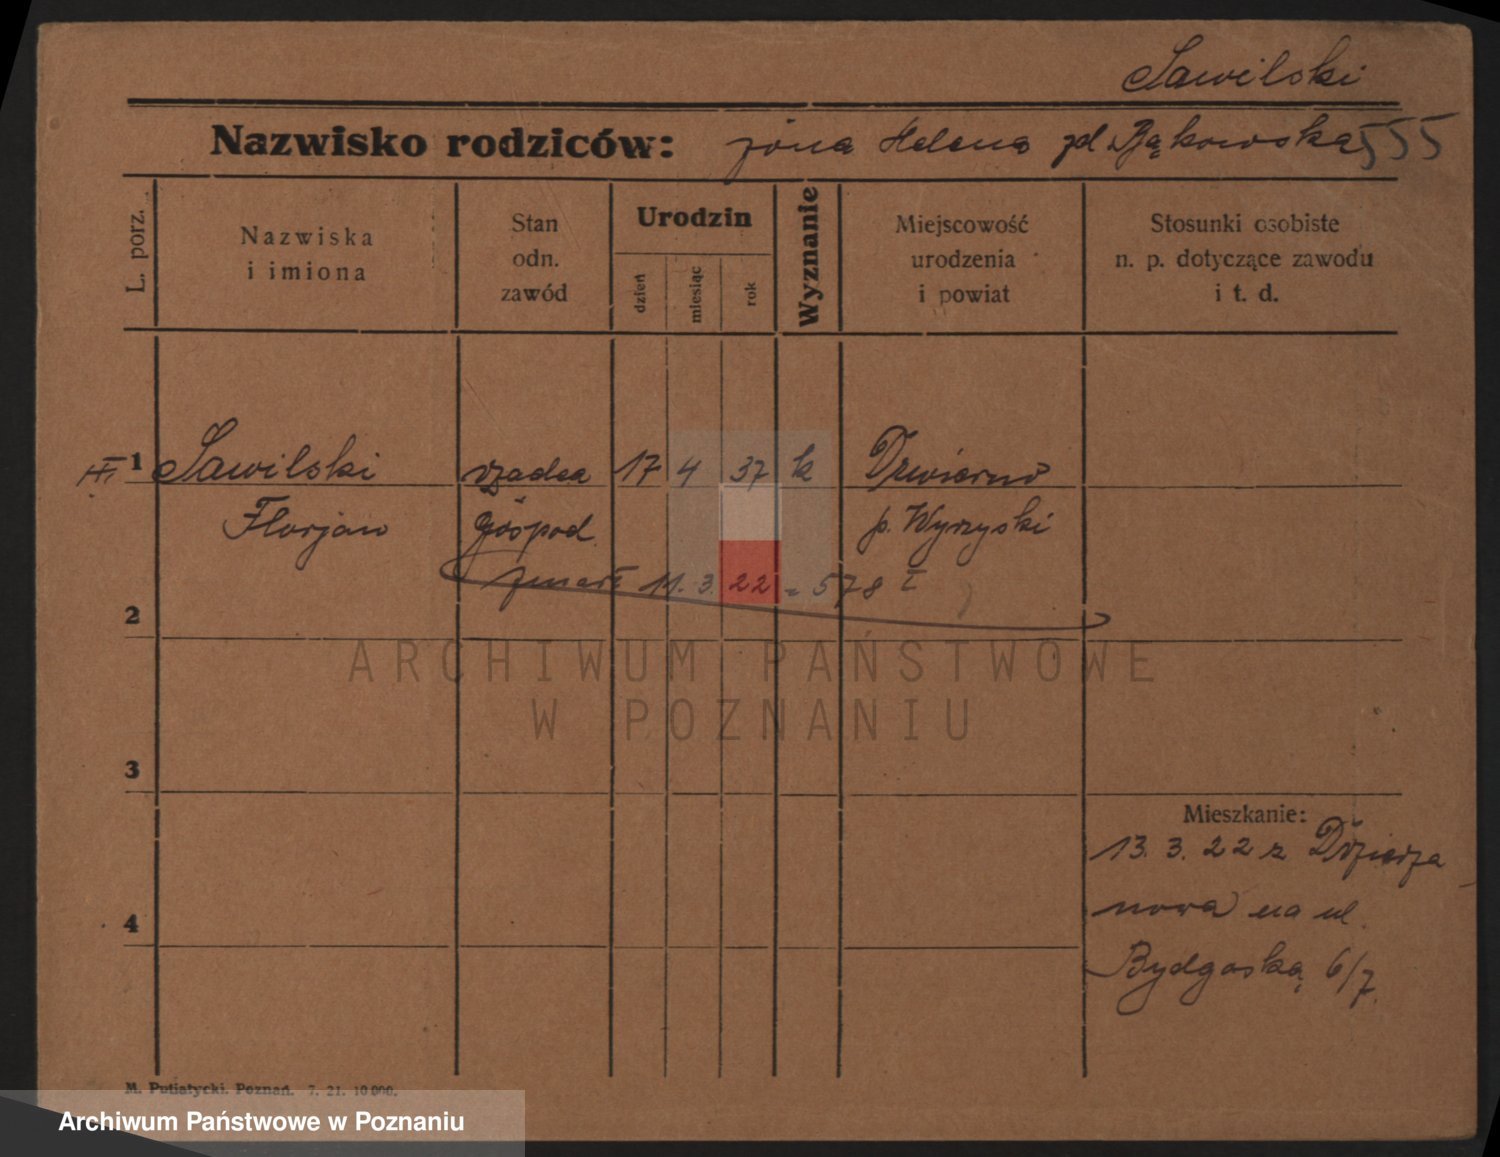 Sawilski
Nazwisko rodziców: żona Helena zd. Bąkowska 555
L. porz.
Nazwiska
i imiona
Stan
odn.
zawód
Urodzin
dzień
miesiąc
rok
Wyznanie
Miejscowość
urodzenia
i powiat
Stosunki osobiste
n. p. dotyczące zawodu
i t. d.
III 1 Sawilski rządca 17 4 37 k
Florjan Gospod. p. Wyrzyski
zmarł 11. 3. 22 = 578 I
2
ARCHIWUM PAŃSTWOWE
W POZNANIU
3
Mieszkanie:
13. 3. 22 z
nowa na ul.
4
Bydgoską 6/7.
M. Putiatycki. Poznań. 7. 21. 10.000.
Archiwum Państwowe w Poznaniu